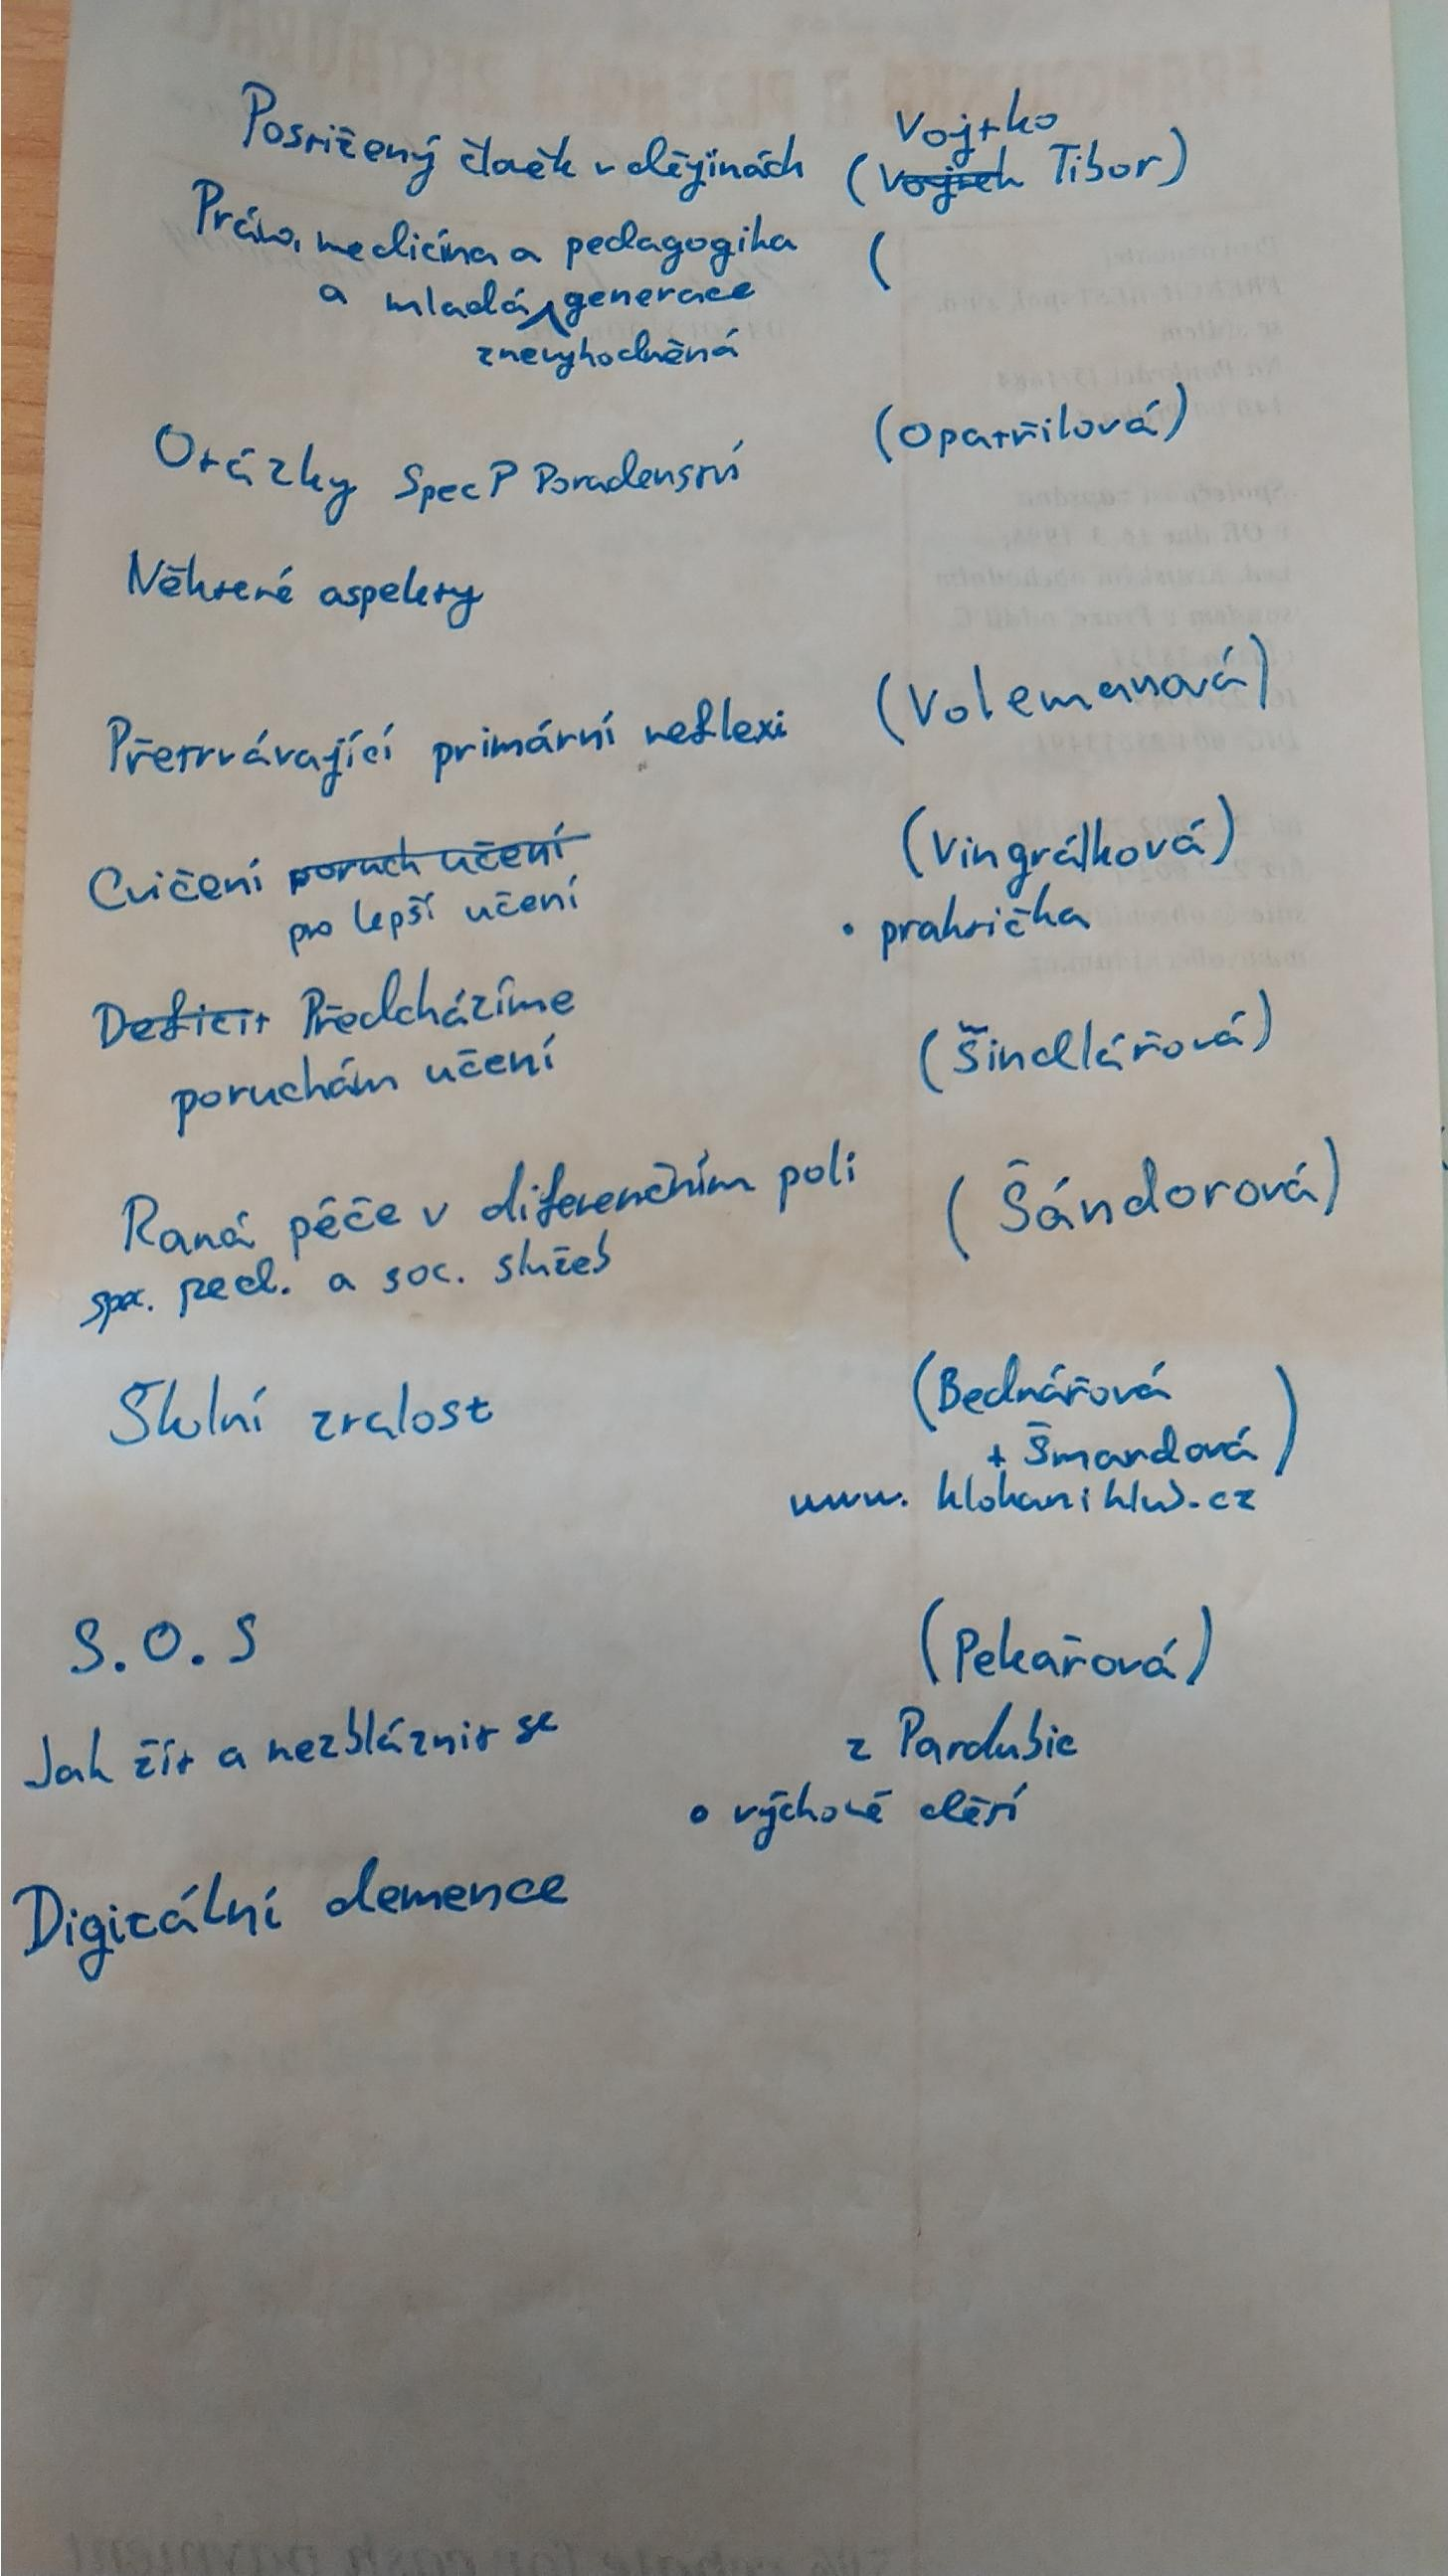 Vojtko
Postižený člověk v dějinách (Vojtech Tibor)
Právo, medicína a pedagogika (
a mladá generace
znevýhodněná
Otázky SpecP Poradenství (Opatřilová)
Některé aspekty
Přetrvávající primární reflexi (Volemanová)
Cvičení poruch učení (Vingrálková)
pro lepší učení • prakticka
Deficit Předcházíme
poruchám učení (Šindlářová)
Raná péče v diferenčním poli (Šándorová)
spec. ped. a soc. služeb
Školní zralost (Bednářová
+ Šmardová)
www. klokaniklub.cz
S.O.S (Pekařová)
Jak žít a nezbláznit se z Pardubic
o výchově dětí
Digitální demence